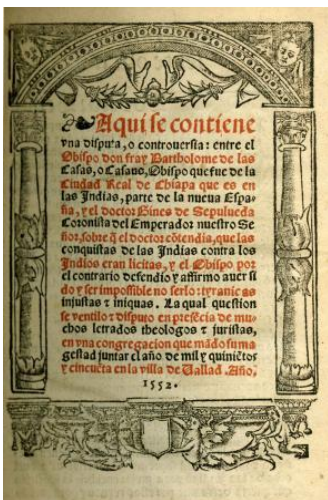 Aqui se contiene
vna disputa, o controuersia: entre el
Obispo don fray Bartholome de las
Casas, o Casaus, Obispo que fue de la
Ciudad Real de Chiapa que es en
las Indias, parte de la nueua Espa-
ña, y el doctor Gines de Sepulueda
Coronista del Emperador nuestro Se-
ñor, sobre q̃ el doctor cõtendia, que las
conquistas de las Indias contra los
Indios eran licitas, y el Obispo por
el contrario defendio y affirmo auer si-
do y ser impossible no serlo: tyranicas
injustas τ iniquas. La qual question
se ventilo τ disputo en presẽcia de mu-
chos letrados theologos τ juristas,
en vna congregacion que mãdo su ma-
gestad juntar el año de mil y quiniẽtos
y cincuẽta en la villa de Uallad. Año.
1552.